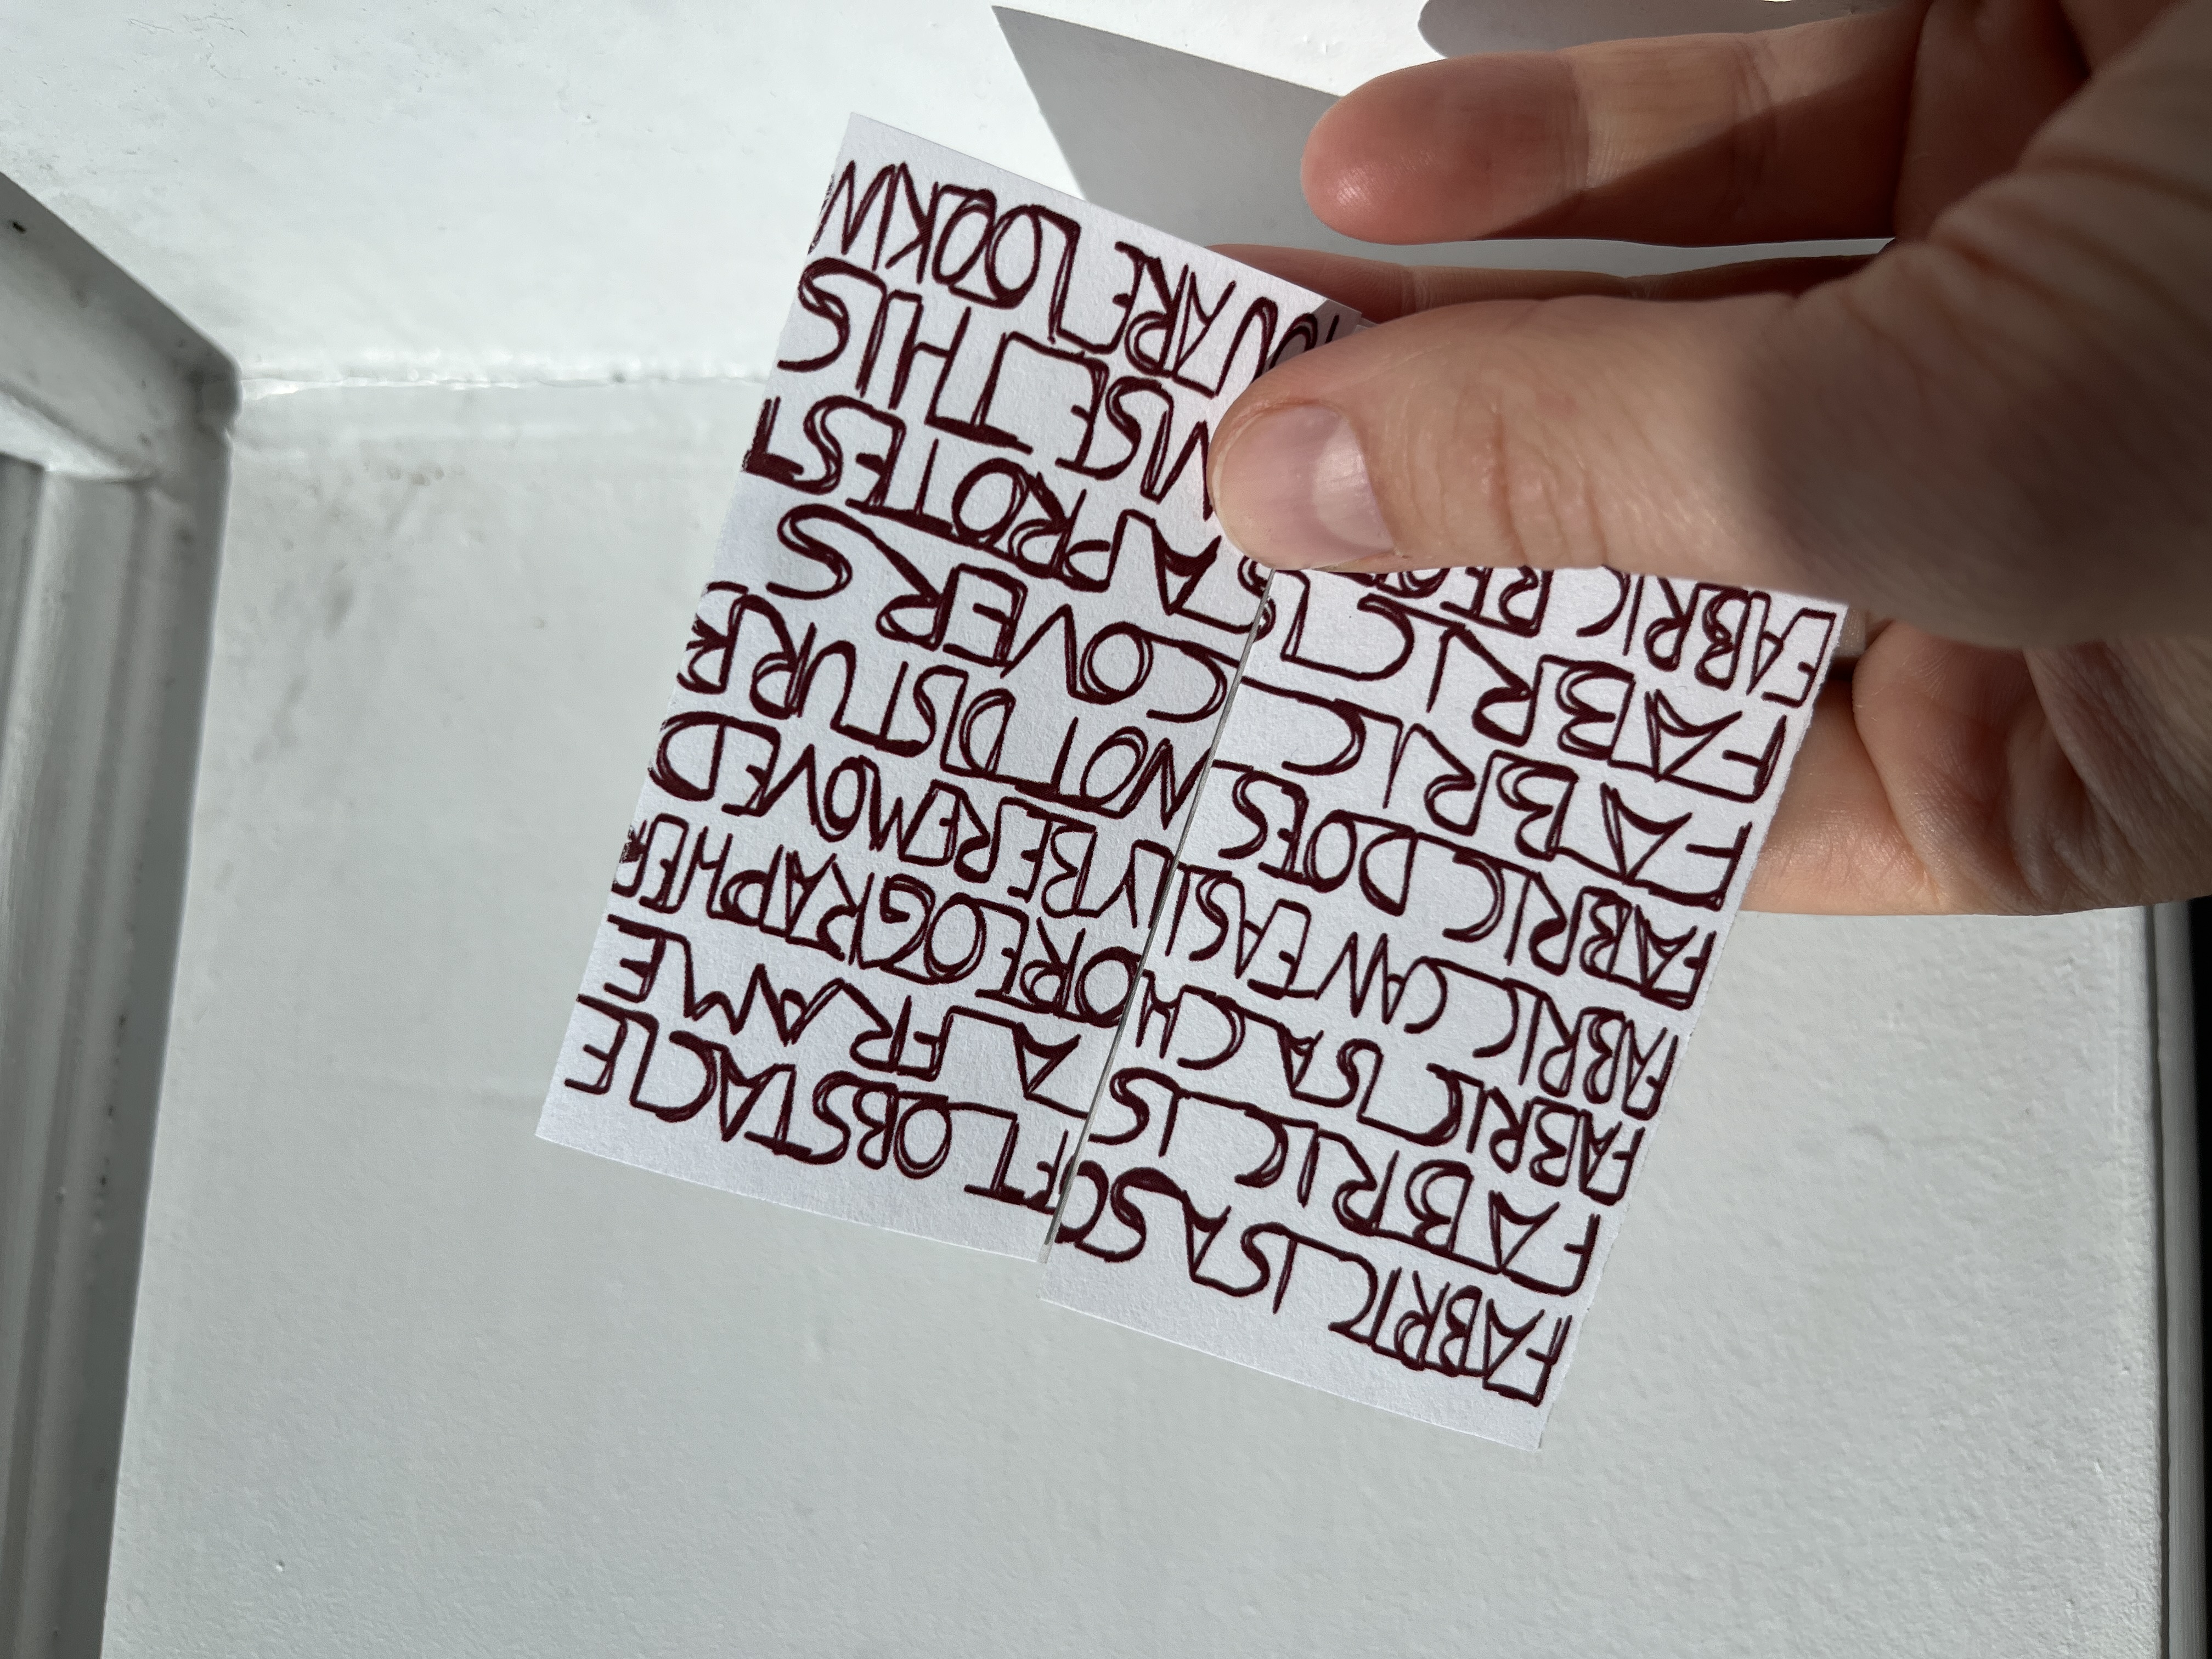 FABRIC IS A SOFT OBSTACLE
FABRIC IS A FRAME
FABRIC IS A CHOREOGRAPHER
FABRIC CAN EASILY BE REMOVED
FABRIC DOES NOT DISTURB
FABRIC COVERS
FABRIC IS A PROTEST
FABRIC THIS
YOU ARE LOOK